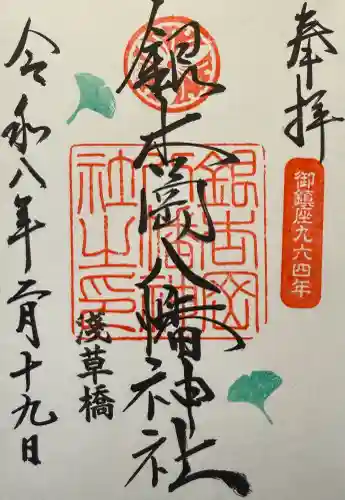 奉拝
御鎮座九六四年
銀杏岡八幡神社
銀杏岡八幡神社之印
浅草橋
令和八年二月十九日